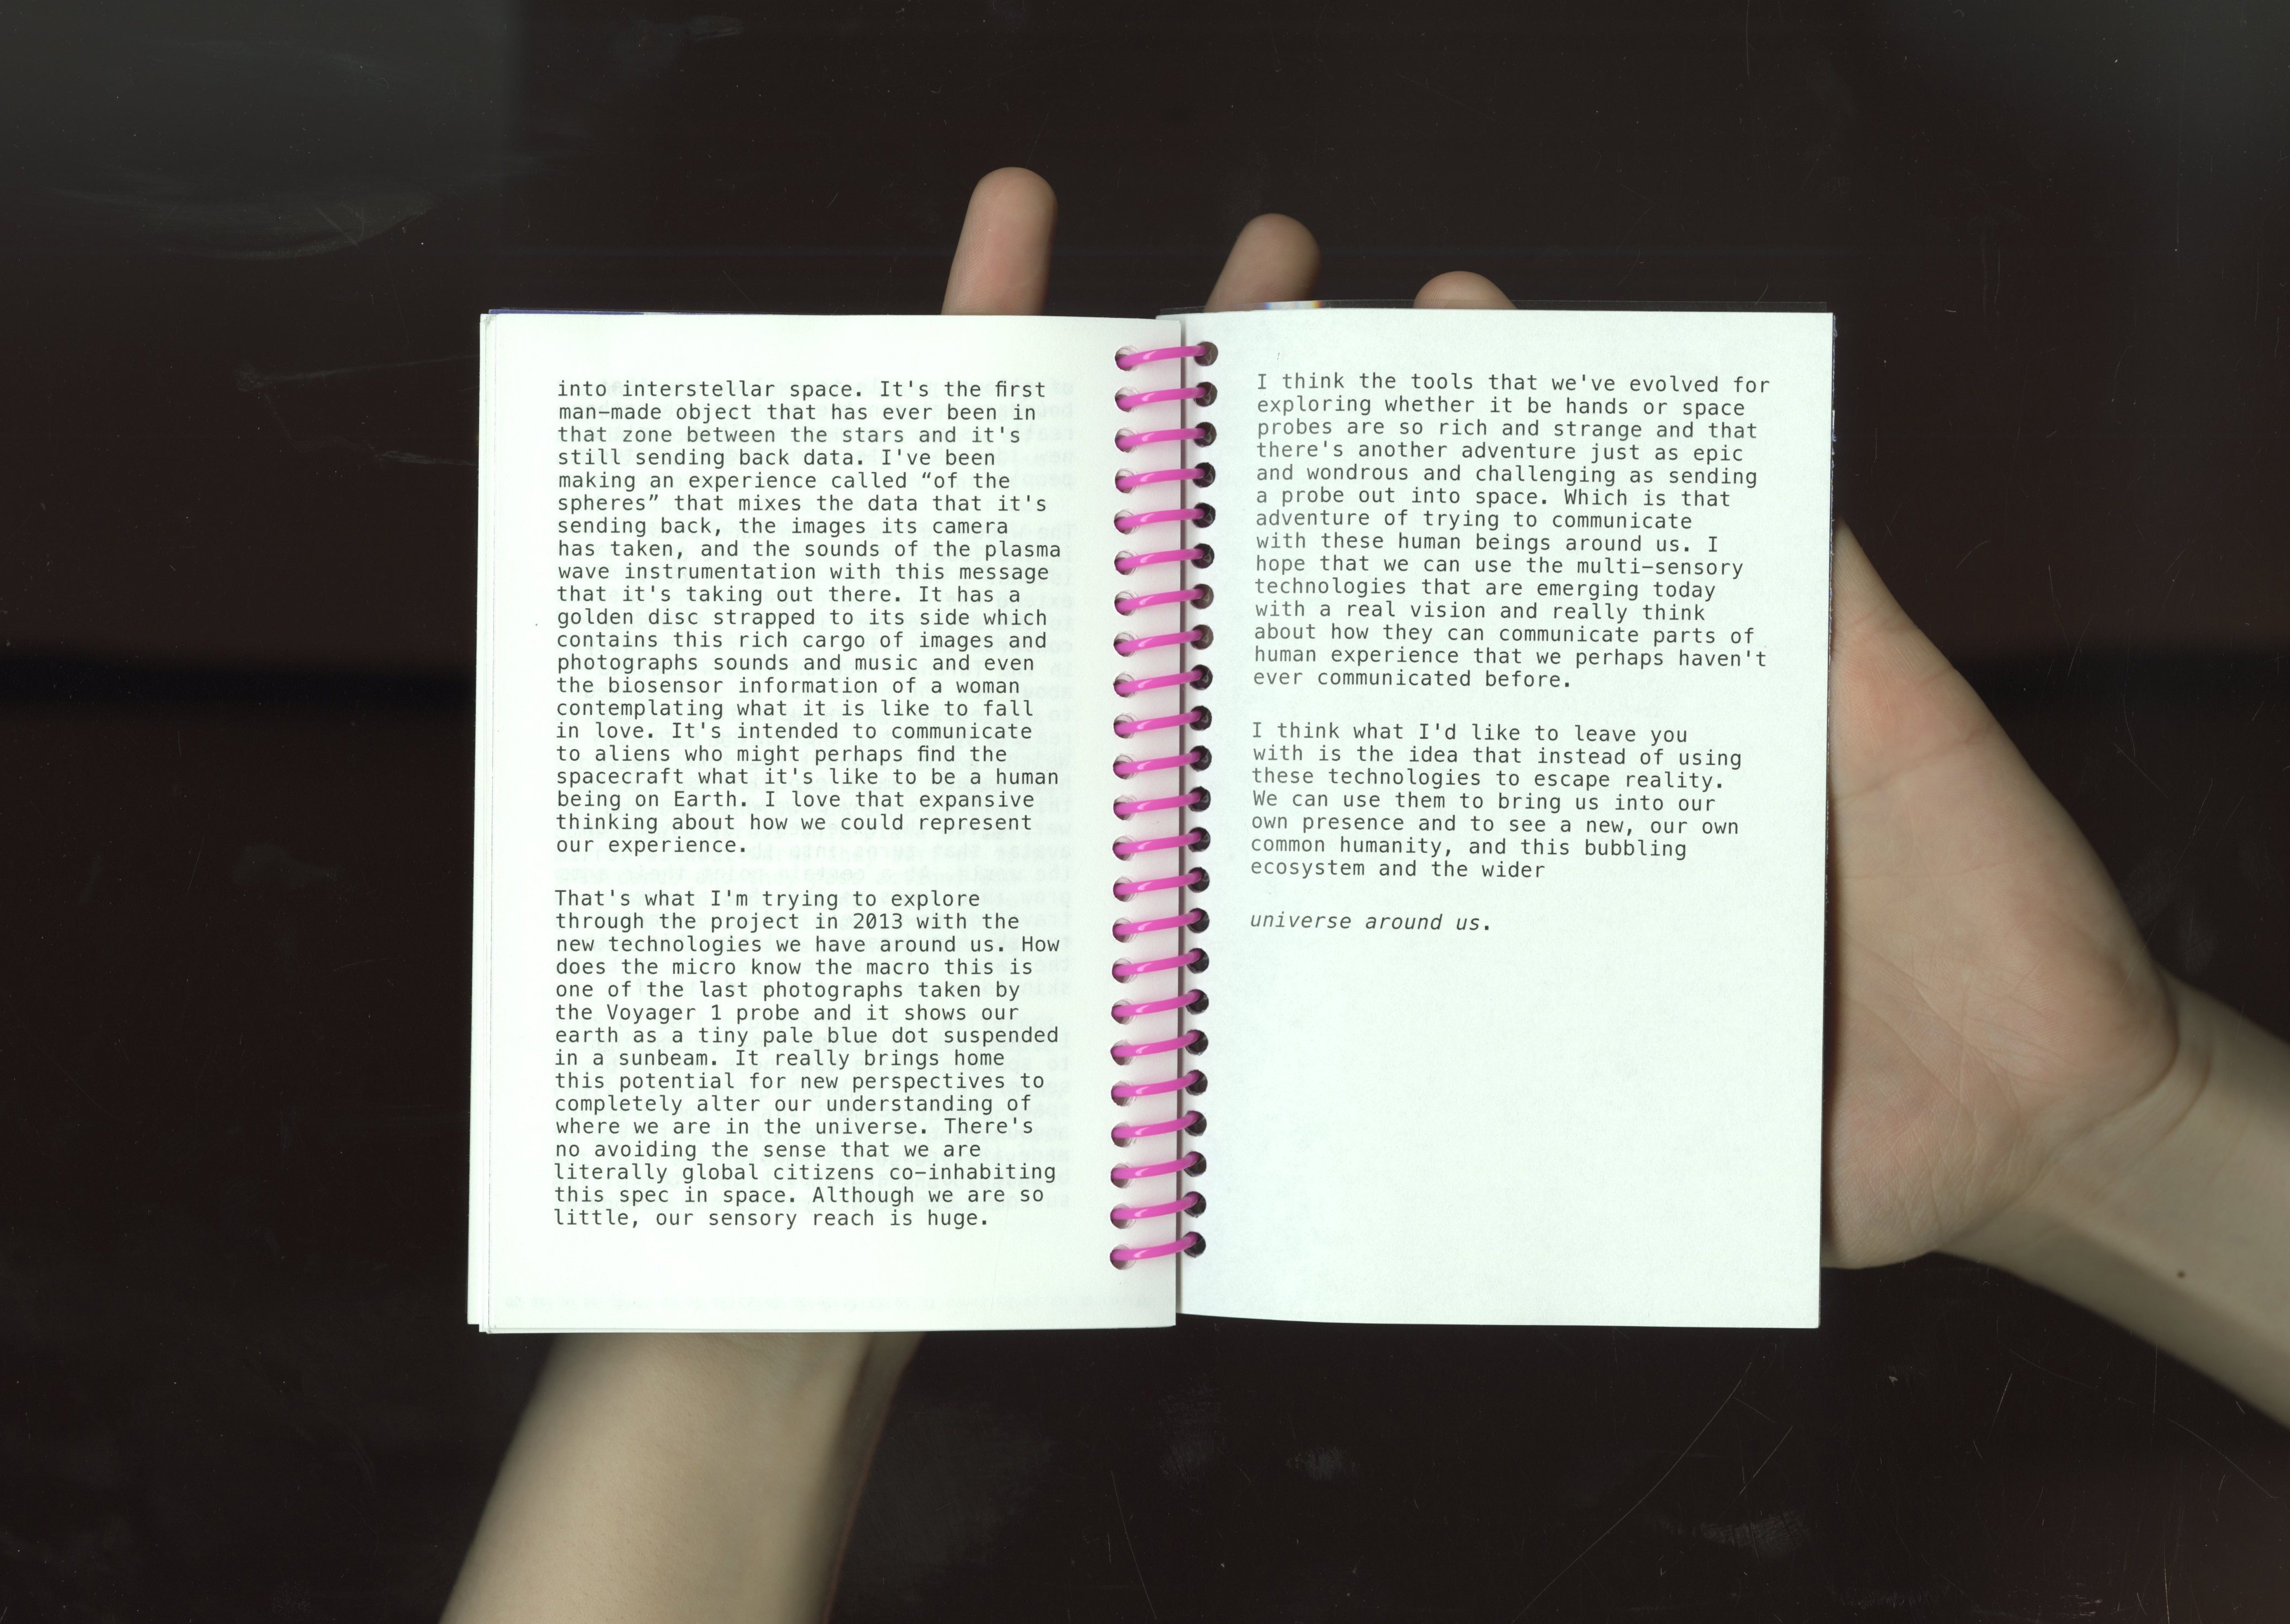 into interstellar space. It's the first
man-made object that has ever been in
that zone between the stars and it's
still sending back data. I've been
making an experience called “of the
spheres” that mixes the data that it's
sending back, the images its camera
has taken, and the sounds of the plasma
wave instrumentation with this message
that it's taking out there. It has a
golden disc strapped to its side which
contains this rich cargo of images and
photographs sounds and music and even
the biosensor information of a woman
contemplating what it is like to fall
in love. It's intended to communicate
to aliens who might perhaps find the
spacecraft what it's like to be a human
being on Earth. I love that expansive
thinking about how we could represent
our experience.

That's what I'm trying to explore
through the project in 2013 with the
new technologies we have around us. How
does the micro know the macro this is
one of the last photographs taken by
the Voyager 1 probe and it shows our
earth as a tiny pale blue dot suspended
in a sunbeam. It really brings home
this potential for new perspectives to
completely alter our understanding of
where we are in the universe. There's
no avoiding the sense that we are
literally global citizens co-inhabiting
this spec in space. Although we are so
little, our sensory reach is huge.

I think the tools that we've evolved for
exploring whether it be hands or space
probes are so rich and strange and that
there's another adventure just as epic
and wondrous and challenging as sending
a probe out into space. Which is that
adventure of trying to communicate
with these human beings around us. I
hope that we can use the multi-sensory
technologies that are emerging today
with a real vision and really think
about how they can communicate parts of
human experience that we perhaps haven't
ever communicated before.

I think what I'd like to leave you
with is the idea that instead of using
these technologies to escape reality.
We can use them to bring us into our
own presence and to see a new, our own
common humanity, and this bubbling
ecosystem and the wider

universe around us.